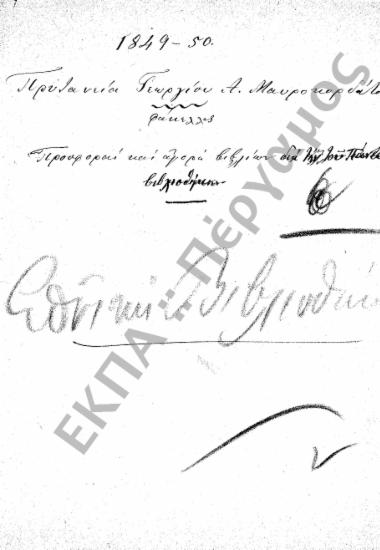 1849-50.
Πρυτανεία Γεωργίου Α. Μαυροκορδάτο
φάκελλος
Προσφοραί και αγορά βιβλίων διά την του Πανεπ
βιβλιοθήκην
6
Εθνική Βιβλιοθήκη
ΕΚΠΑ :: Πέργαμος